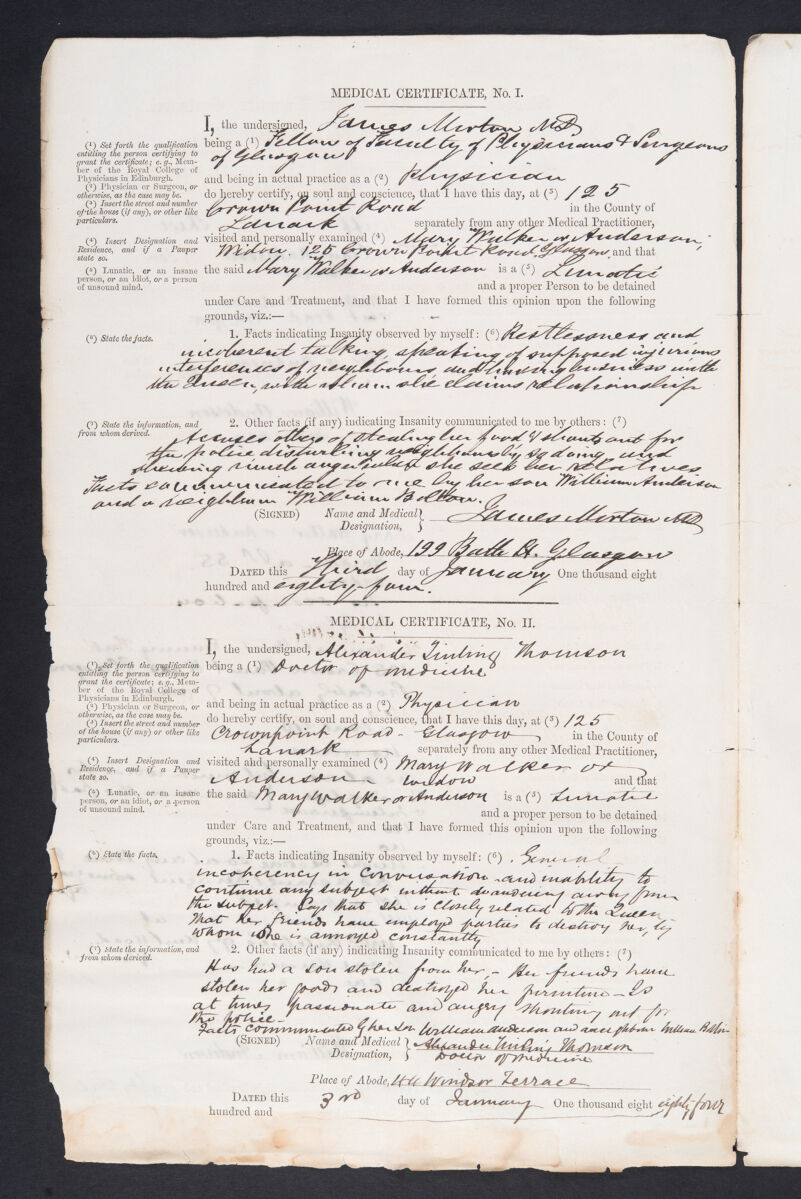 MEDICAL CERTIFICATE, No. I.
I, the undersigned, James Morton MD
being a (1) Fellow of Faculty of Physicians & Surgeons
of Glasgow
and being in actual practice as a (2) Physician
do hereby certify, on soul and conscience, that I have this day, at (3) 125
Crown Point Road in the County of
Lanark separately from any other Medical Practitioner,
visited and personally examined (4) Mary Walker or Anderson,
Widow. 125 Crown Point Road Glasgow and that
the said Mary Walker or Anderson is a (5) Lunatic
and a proper Person to be detained
under Care and Treatment, and that I have formed this opinion upon the following
grounds, viz.:—
1. Facts indicating Insanity observed by myself: (6) Restlessness and
incoherent talking, speaking of supposed injurious
interferences of neighbours, and having business with
the Queen, with whom she claims relationship
2. Other facts (if any) indicating Insanity communicated to me by others: (7)
Accuses others of stealing her food & shouts out for
the police disturbing neighbours by so doing, and
shewing much anger when she sees her relatives
Facts communicated to me by her son William Anderson
and a neighbour William Bolton.
(SIGNED) Name and Medical Designation, James Morton MD
Place of Abode, 199 Bath St. Glasgow
DATED this Third day of January One thousand eight
hundred and eighty-four.
(1) Set forth the qualification
entitling the person certifying to
grant the certificate; e. g., Mem-
ber of the Royal College of
Physicians in Edinburgh.
(2) Physician or Surgeon, or
otherwise, as the case may be.
(3) Insert the street and number
of the house (if any), or other like
particulars.
(4) Insert Designation and
Residence, and if a Pauper
state so.
(5) Lunatic, or an insane
person, or an idiot, or a person
of unsound mind.
(6) State the facts.
(7) State the information, and
from whom derived.
MEDICAL CERTIFICATE, No. II.
I, the undersigned, Alexander Thomson
being a (1) Doctor of medicine
and being in actual practice as a (2) Physician
do hereby certify, on soul and conscience, that I have this day, at (3) 125
Crownpoint Road - Glasgow in the County of
Lanark separately from any other Medical Practitioner,
visited and personally examined (4) Mary Walker or
Anderson - widow and that
the said Mary Walker or Anderson is a (5) Lunatic
and a proper person to be detained
under Care and Treatment, and that I have formed this opinion upon the following
grounds, viz.:—
1. Facts indicating Insanity observed by myself: (6) General
incoherency in conversation and inability to
continue any subject without wandering away from
the subject. Says that she is closely related to the Queen
that her friends have employed parties to destroy her, by
whom she is annoyed constantly
2. Other facts (if any) indicating Insanity communicated to me by others: (7)
Has had a son stolen from her, - Her friends have
stolen her goods and destroyed her furniture - Is
at times passionate and angry shouting out for
the police -
Facts communicated by her son William Anderson and a neighbour William Bolton
(SIGNED) Name and Medical Designation, Alexander Thomson
Doctor of medicine
Place of Abode, 44 Windsor Terrace
DATED this 3rd day of January One thousand eight eighty four
hundred and
(1) Set forth the qualification
entitling the person certifying to
grant the certificate; e. g., Mem-
ber of the Royal College of
Physicians in Edinburgh.
(2) Physician or Surgeon, or
otherwise, as the case may be.
(3) Insert the street and number
of the house (if any) or other like
particulars.
(4) Insert Designation and
Residence, and if a Pauper
state so.
(5) Lunatic, or an insane
person, or an idiot, or a person
of unsound mind.
(6) State the facts.
(7) State the information, and
from whom derived.